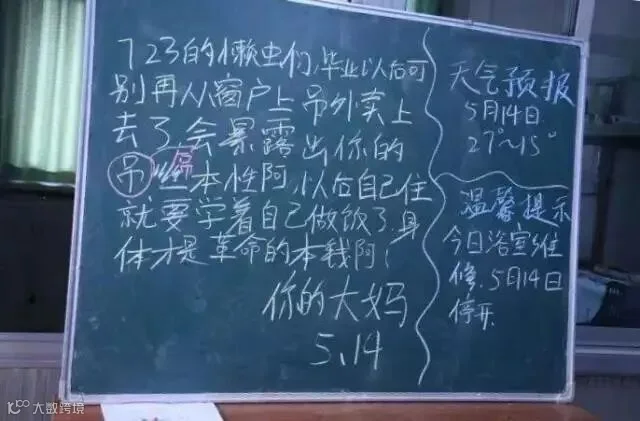 723的懒虫们,毕业以后可
别再从窗户上吊外卖上
去了,会暴露出你的
吊丝本性阿,以后自己住
吊
就要学着自己做饭了,身
体才是革命的本钱阿!
你的大妈
5.14
天气预报
5月14日
27°~15°
温馨提示
今日浴室维
修,5月14日
停开
大数跨境